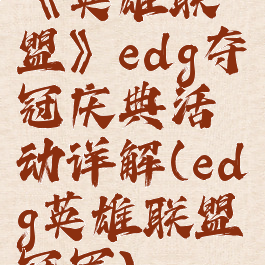 《英雄联
盟》edg夺
冠庆典活
动详解(ed
g英雄联盟
冠军)